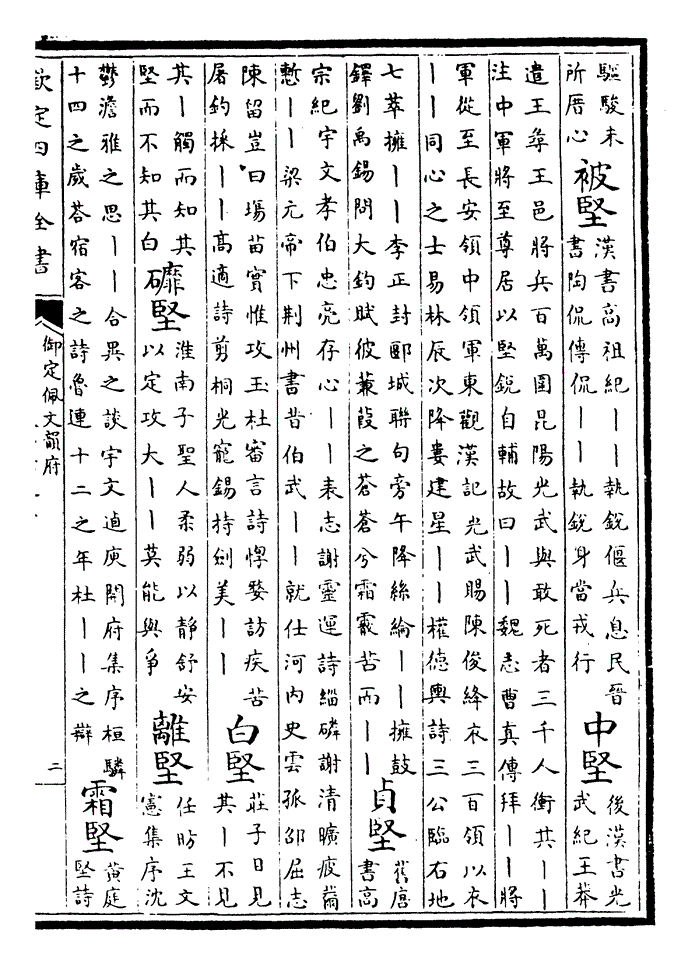 驅駿未
所厝心
被堅
漢書高祖紀｜｜執銳偃兵息民晉
書陶侃傳侃｜｜執銳身當戎行
中堅
後漢書光
武紀王莽
遣王尋王邑將兵百萬圍昆陽光武與敢死者三千人衝其｜｜
注中軍將至尊居以堅銳自輔故曰｜｜魏志曹真傳拜｜｜將
軍從至長安領中領軍東觀漢記光武賜陳俊絳衣三百領以衣
｜｜同心之士易林辰次降婁建星｜｜權德輿詩三公臨右地
七萃擁｜｜李正封郾城聯句旁午降絲綸｜｜擁鼓
鐸劉禹錫問大鈞賦彼蒹葭之蒼蒼兮霜霰苦而｜｜
貞堅
舊唐
書高
宗紀宇文孝伯忠亮存心｜｜表志謝靈運詩緇磷謝清曠疲薾
慙｜｜梁元帝下荆州書昔伯武｜｜就仕河内史雲孤邵屈志
陳留豈曰場苗實惟攻玉杜審言詩惸嫠訪疾苦
屠釣採｜｜高適詩剪桐光寵錫持劍美｜｜
白堅
莊子目見
其｜不見
其｜觸而知其
堅而不知其白
䃺堅
淮南子聖人柔弱以靜舒安
以定攻大｜｜莫能與爭
離堅
任昉王文
憲集序沈
鬱澹雅之思｜｜合異之談宇文逌庾開府集序桓驎
十四之歲荅宿客之詩魯連十二之年杜｜｜之辯
霜堅
黄庭
堅詩
欽定四庫全書
御定佩文韻府
二